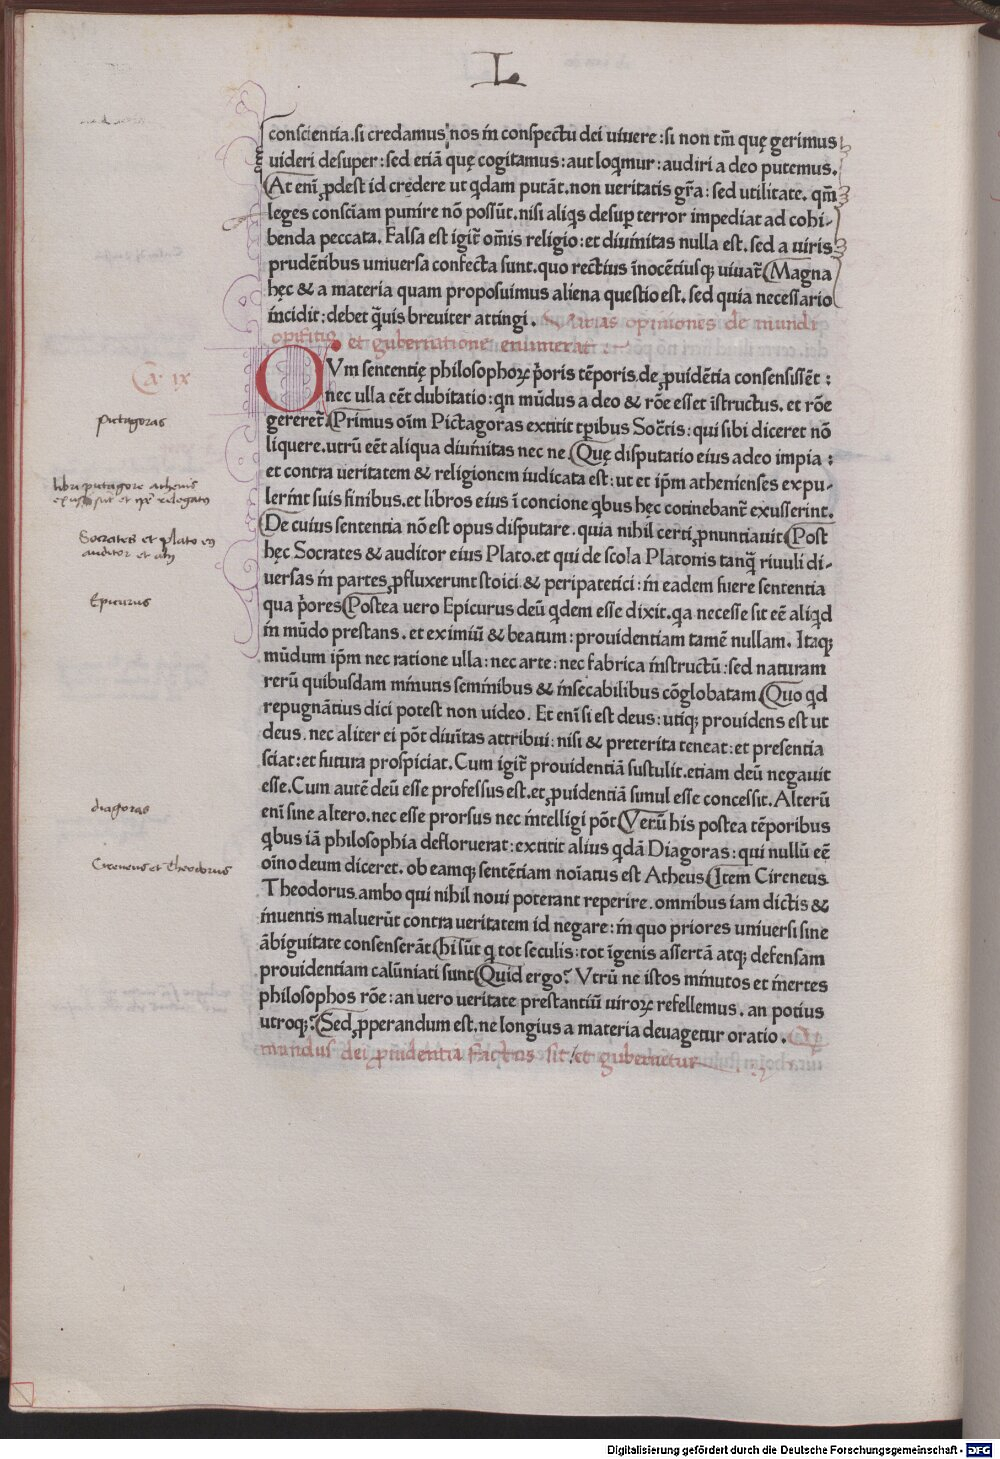 L
conscientia. si credamus nos in conspectu dei uiuere: si non tm̄ quę gerimus
uideri desuper: sed etiā quę cogitamus: aut loq̄mur: audiri a deo putemus.
At eniꝫ ꝓdest id credere ut q̇dam putāt. non ueritatis gr̄a: sed utilitate. qm̄
leges consc̄iam punire nō possūt. nisi aliq̇s desup̱ terror impediat ad cohi-
benda peccata. Falsa est igit̄ om̄is religio: et diuinitas nulla est. sed a uiris
prudētibus uniuersa confecta sunt. quo rectius īnocētiusq; uiuat̄ Magna
hęc & a materia quam proposuimus aliena questio est. sed quia necessario
incidit: debet q̄uis breuiter attingi. Varias opiniones de mundi
opificio et gubernatione enumerat
Ca. ix
OVm sententię philosophoꝝ p̄oris tēporis de ꝓuidētia consensissēt:
nec ulla cēt dubitatio: qn mūdus a deo & rōe esset īstructus. et rōe
gereret̄ Primus oīm Pictagoras extitit tp̱ibus Socr̄tis: qui sibi diceret nō
liquere. utrū eēt aliqua diuinitas nec ne. Quę disputatio eius adeo impia:
et contra ueritatem & religionem iudicata est: ut et ip̄m athenienses expu-
lerint suis finibus. et libros eius ī concione q̇bus hęc cōtinebant̄ exusserint.
De cuius sententia nō est opus disputare. quia nihil certi ꝓnuntiauit Post
hęc Socrates & auditor eius Plato. et qui de scola Platonis tanq̄ riuuli di-
uersas in partes ꝓfluxerunt stoici & peripatetici: in eadem fuere sententia
qua p̄ores Postea uero Epicurus deū q̇dem esse dixit. qa necesse sit eē aliq̇d
in mūdo prestans. et eximiū & beatum: prouidentiam tamē nullam. Itaq;
mūdum ip̄m nec ratione ulla: nec arte: nec fabrica instructū: sed naturam
rerū quibusdam minutis seminibus & insecabilibus cōglobatam Quo q̇d
repugnātius dici potest non uideo. Et enī si est deus: utiq; prouidens est ut
deus. nec aliter ei pōt diuītas attribui: nisi & preterita teneat: et presentia
sciat: et futura prospiciat. Cum igit̄ prouidentiā sustulit. etiam deū negauit
esse. Cum autē deū esse professus est. et ꝓuidentiā simul esse concessit. Alterū
enī sine altero. nec esse prorsus nec intelligi pōt Verū his postea tēporibus
q̇bus iā philosophia defloruerat: extitit alius q̇dā Diagoras: qui nullū eē
oīno deum diceret. ob eamq; sentētiam noīatus est Atheus Item Cireneus
Theodorus. ambo qui nihil noui poterant reperire. omnibus iam dictis &
inuentis maluerūt contra ueritatem id negare: in quo priores uniuersi sine
ābiguitate consenserāt hi sūt q̇ tot seculis: tot īgenis assertā atq; defensam
prouidentiam calūniati sunt Quid ergo? Vtrū ne istos minutos et inertes
philosophos rōe: an uero ueritate prestantiū uiroꝝ refellemus. an potius
utroq;? Sed ꝓperandum est. ne longius a materia deuagetur oratio. Q
mundus dei ꝓuidentia factus sit et gubernetur
pictagoras
libri putagore athenis
Socrates et plato ei9
auditor et alij
Epicurus
diagoras
Cireneus et Theodorus
Digitalisierung gefördert durch die Deutsche Forschungsgemeinschaft - DFG